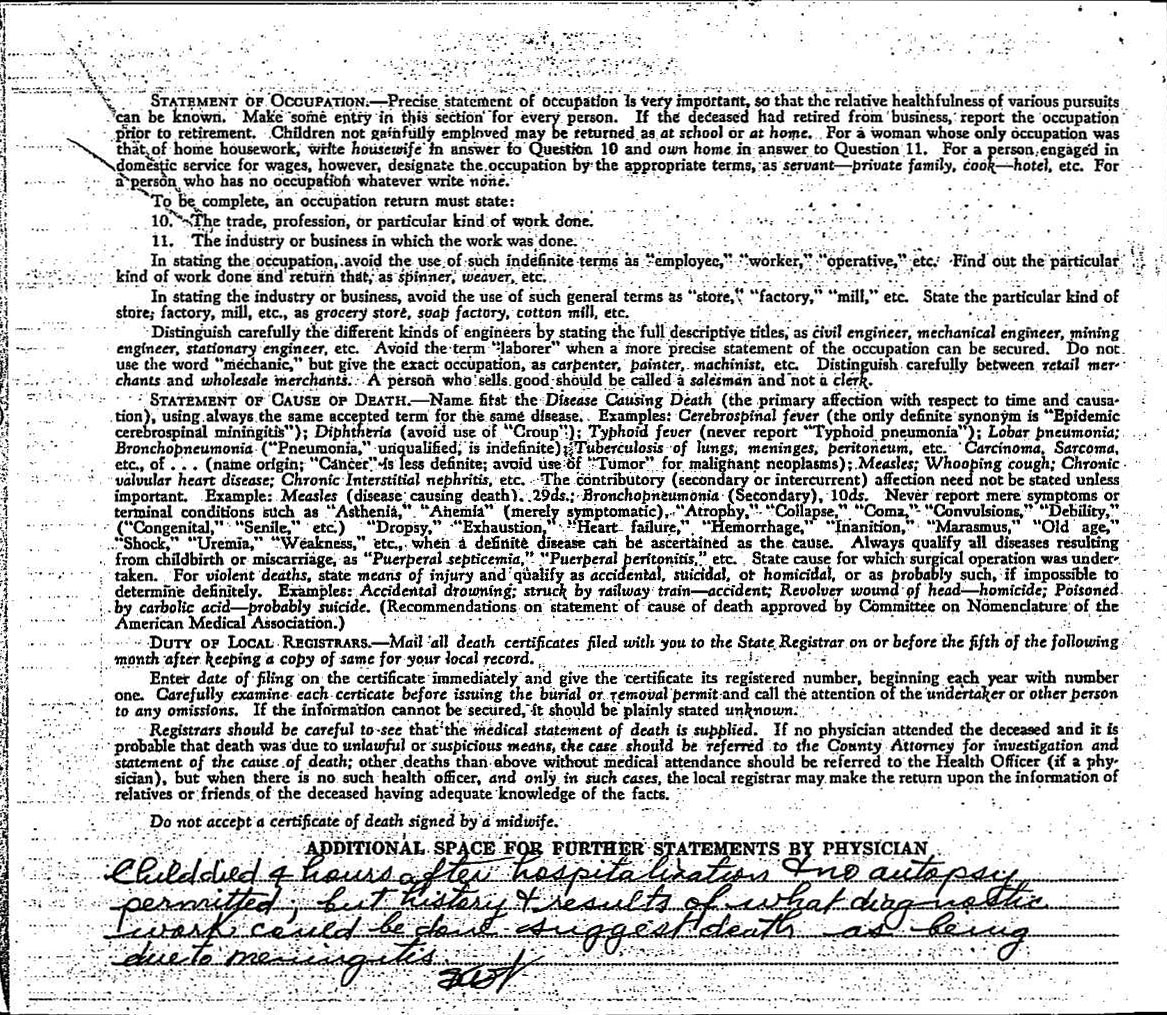 STATEMENT OF OCCUPATION.—Precise statement of occupation is very important, so that the relative healthfulness of various pursuits
can be known. Make some entry in this section for every person. If the deceased had retired from business, report the occupation
prior to retirement. Children not gainfully employed may be returned as at school or at home. For a woman whose only occupation was
that of home housework, write housewife in answer to Question 10 and own home in answer to Question 11. For a person engaged in
domestic service for wages, however, designate the occupation by the appropriate terms, as servant—private family, cook—hotel, etc. For
a person who has no occupation whatever write none.
To be complete, an occupation return must state:
10. The trade, profession, or particular kind of work done.
11. The industry or business in which the work was done.
In stating the occupation, avoid the use of such indefinite terms as "employee," "worker," "operative," etc. Find out the particular
kind of work done and return that, as spinner, weaver, etc.
In stating the industry or business, avoid the use of such general terms as "store," "factory," "mill," etc. State the particular kind of
store, factory, mill, etc., as grocery store, soap factory, cotton mill, etc.
Distinguish carefully the different kinds of engineers by stating the full descriptive titles, as civil engineer, mechanical engineer, mining
engineer, stationary engineer, etc. Avoid the term "laborer" when a more precise statement of the occupation can be secured. Do not
use the word "mechanic," but give the exact occupation, as carpenter, painter, machinist, etc. Distinguish carefully between retail mer-
chants and wholesale merchants. A person who sells good should be called a salesman and not a clerk.
STATEMENT OF CAUSE OF DEATH.—Name first the Disease Causing Death (the primary affection with respect to time and causa-
tion), using always the same accepted term for the same disease. Examples: Cerebrospinal fever (the only definite synonym is "Epidemic
cerebrospinal miningitis"); Diphtheria (avoid use of "Croup"); Typhoid fever (never report "Typhoid pneumonia"); Lobar pneumonia;
Bronchopneumonia ("Pneumonia," unqualified, is indefinite); Tuberculosis of lungs, meninges, peritoneum, etc. Carcinoma, Sarcoma,
etc., of . . . (name origin; "Cancer" is less definite; avoid use of "Tumor" for malignant neoplasms); Measles; Whooping cough; Chronic
valvular heart disease; Chronic Interstitial nephritis, etc. The contributory (secondary or intercurrent) affection need not be stated unless
important. Example: Measles (disease causing death), 29ds.; Bronchopneumonia (Secondary), 10ds. Never report mere symptoms or
terminal conditions such as "Asthenia," "Anemia" (merely symptomatic), "Atrophy," "Collapse," "Coma," "Convulsions," "Debility,"
("Congenital," "Senile," etc.) "Dropsy," "Exhaustion," "Heart failure," "Hemorrhage," "Inanition," "Marasmus," "Old age,"
"Shock," "Uremia," "Weakness," etc., when a definite disease can be ascertained as the cause. Always qualify all diseases resulting
from childbirth or miscarriage, as "Puerperal septicemia," "Puerperal peritonitis," etc. State cause for which surgical operation was under-
taken. For violent deaths, state means of injury and qualify as accidental, suicidal, or homicidal, or as probably such, if impossible to
determine definitely. Examples: Accidental drowning; struck by railway train—accident; Revolver wound of head—homicide; Poisoned
by carbolic acid—probably suicide. (Recommendations on statement of cause of death approved by Committee on Nomenclature of the
American Medical Association.)
DUTY OF LOCAL REGISTRARS.—Mail all death certificates filed with you to the State Registrar on or before the fifth of the following
month after keeping a copy of same for your local record.
Enter date of filing on the certificate immediately and give the certificate its registered number, beginning each year with number
one. Carefully examine each certicate before issuing the burial or removal permit and call the attention of the undertaker or other person
to any omissions. If the information cannot be secured, it should be plainly stated unknown.
Registrars should be careful to see that the medical statement of death is supplied. If no physician attended the deceased and it is
probable that death was due to unlawful or suspicious means, the case should be referred to the County Attorney for investigation and
statement of the cause of death; other deaths than above without medical attendance should be referred to the Health Officer (if a phy-
sician), but when there is no such health officer, and only in such cases, the local registrar may make the return upon the information of
relatives or friends of the deceased having adequate knowledge of the facts.
Do not accept a certificate of death signed by a midwife.
ADDITIONAL SPACE FOR FURTHER STATEMENTS BY PHYSICIAN
Child died 4 hours after hospitalization & no autopsy
permitted, but history & results of what diagnostic
work could be done suggest death as being
due to meningitis.